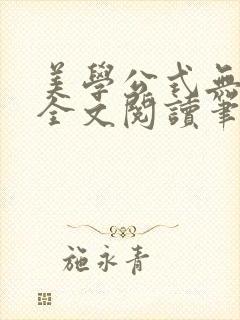 美學公式無
全文閱讀筆
施永青